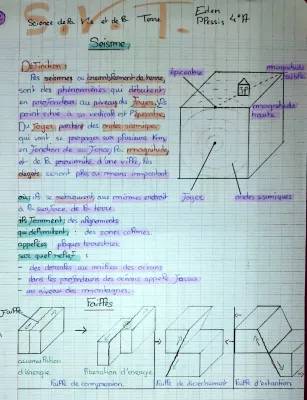 S.V.T.
Science de la Vie et de la Terre
Eden
Plessis 4°A
Seisme
Définition:
Les seismes ou tremblement de terre,
sont des phénomènes qui débutent
en profondeur au niveau du foyer. Un
point situé à sa verticale est l'épicentre.
Du foyer partent des ondes sismiques,
qui vont se propager sur plusieurs km,
en fonction de sa force, la magnitude
et de la proximité d'une ville, les
dégats seront plus ou moins important.
épicentre
magnitude
faible
magnitude
forte
foyer
ondes sismiques
où: ils se retrouvent aux mêmes endroit
à la surface de la terre.
ils forment: des alignements
qui délimitent: des zones calmes.
appelées plaques terrestres
sur quel relief:
- des dorsales au milieu des océans
- dans les profondeurs des océans appelé fosses
- au niveau des montagnes.
Failles
Faille
accumulation
d'énergie.
libération d'énergie.
Faille de compression.
Faille de decrochement
Faille d'extention